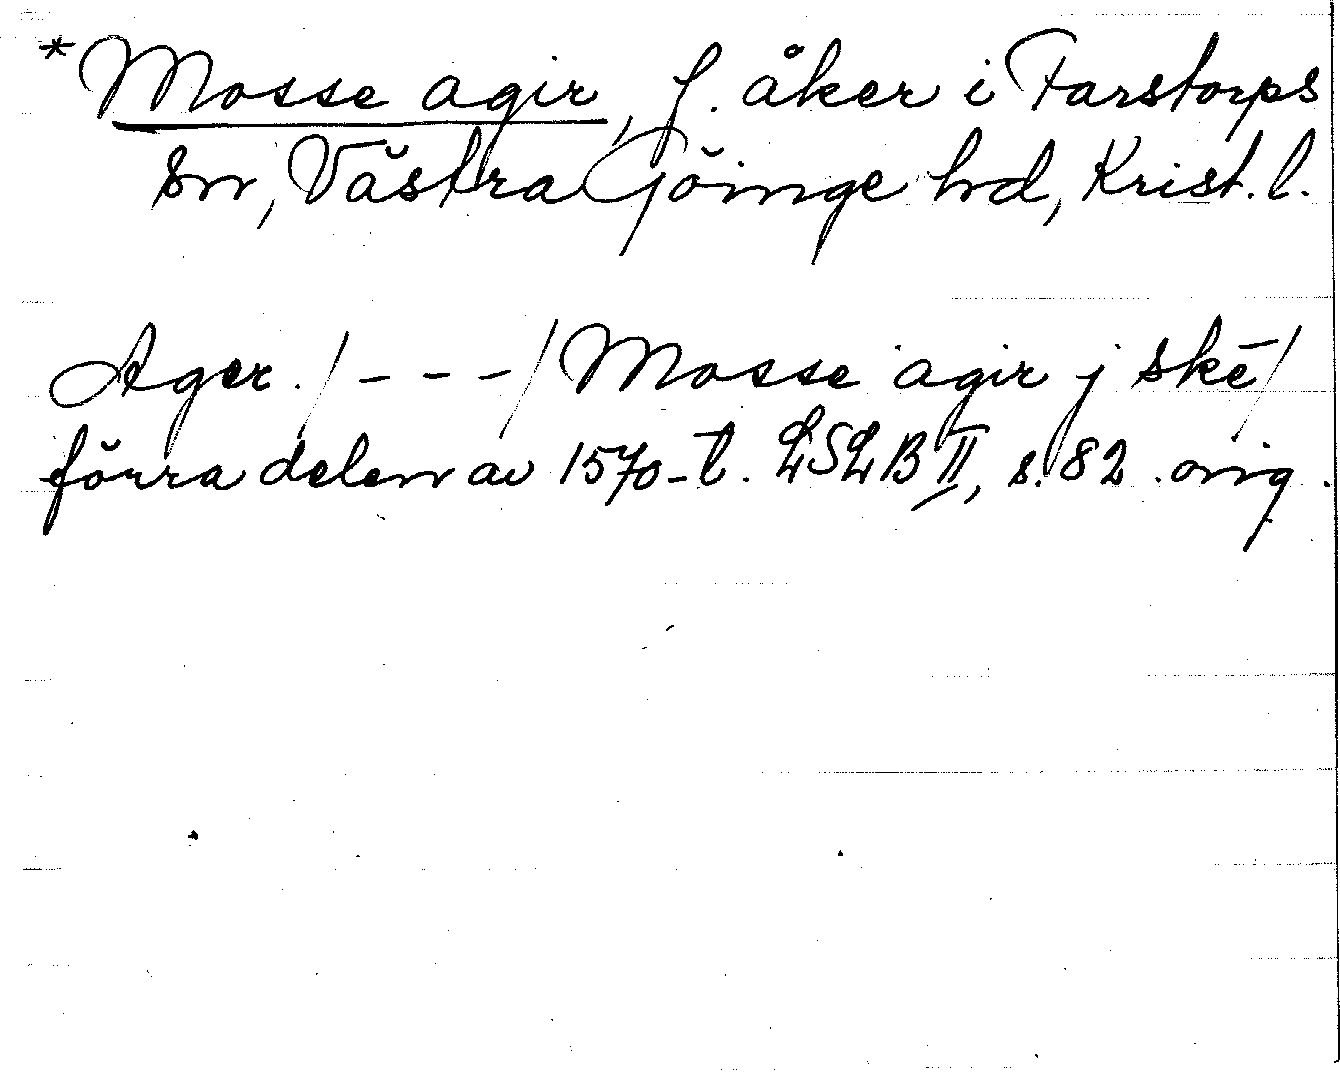 *Mosse agir, f. åker i Farstorps
sn, Västra Göinge hd, Krist. l.
Ager. /---/ Mosse agir j skē/
förra delen av 1570-t. LSLB II, s. 82. orig.